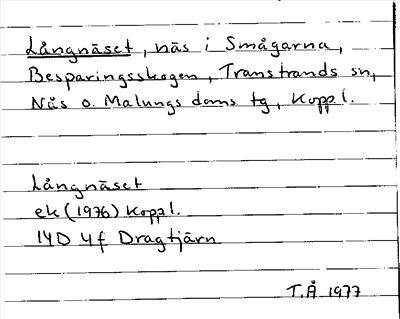 Långnäset, näs i Smågarna,
Besparingsskogen, Transtrands sn,
Nås o. Malungs doms tg, Koppl.
Långnäset
ek (1976) Koppl.
14D 4f Dragtjärn
T.Å 1977